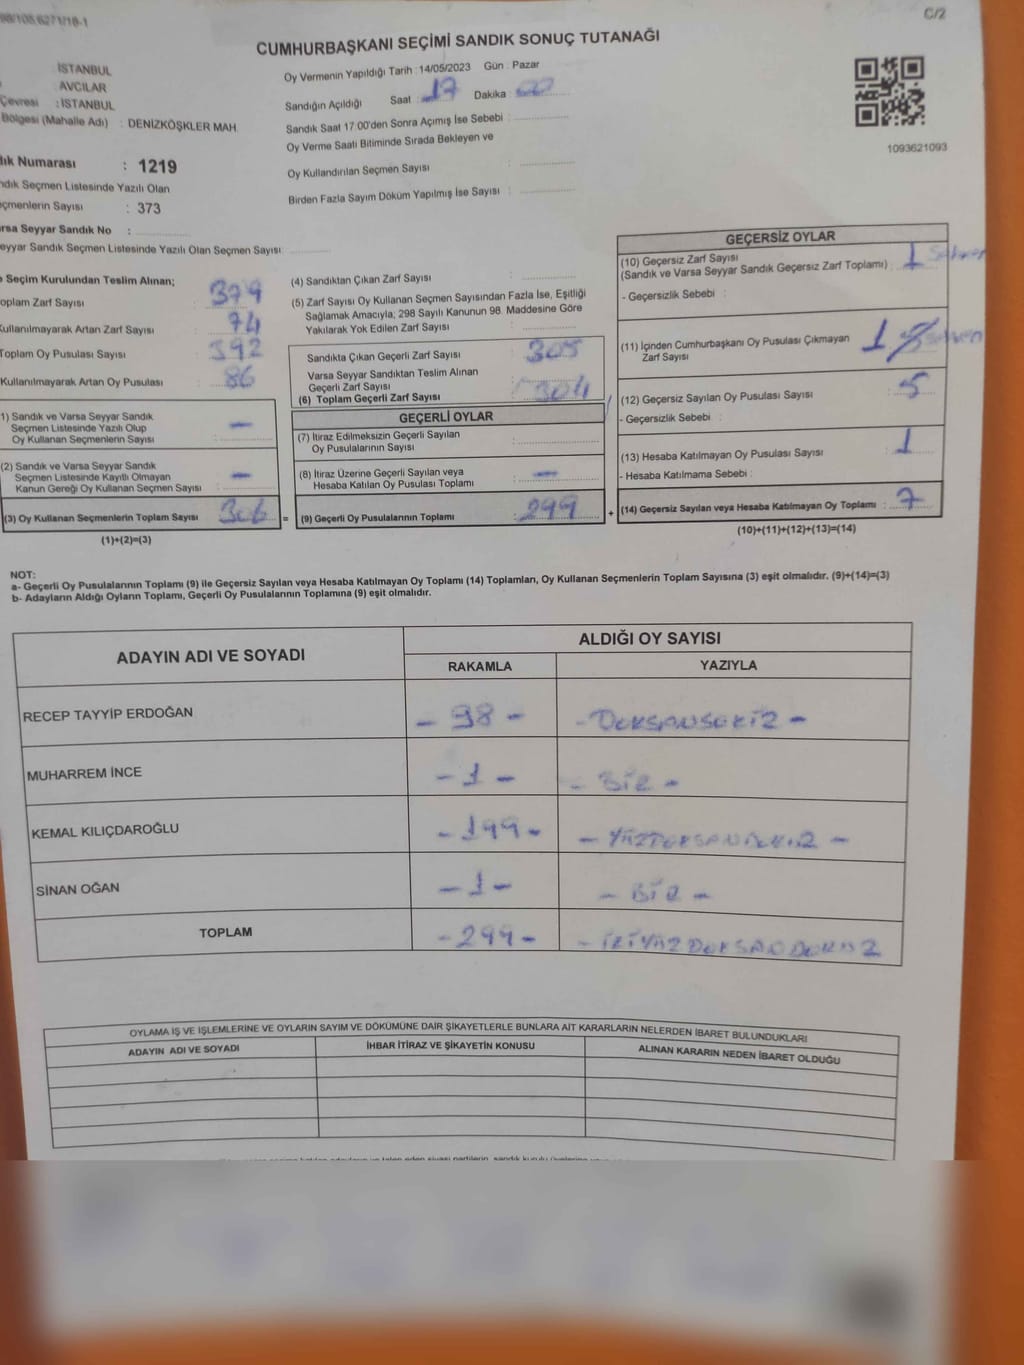 98/105.6271/18-1
C/2
CUMHURBAŞKANI SEÇİMİ SANDIK SONUÇ TUTANAĞI
İSTANBUL
AVCILAR
Çevresi : İSTANBUL
Bölgesi (Mahalle Adı) : DENİZKÖŞKLER MAH.
Oy Vermenin Yapıldığı Tarih : 14/05/2023 Gün : Pazar
Sandığın Açıldığı Saat : 17 Dakika : 00
Sandık Saat 17:00'den Sonra Açımış İse Sebebi :
Oy Verme Saati Bitiminde Sırada Bekleyen ve
Oy Kullandırılan Seçmen Sayısı :
Birden Fazla Sayım Döküm Yapılmış İse Sayısı :
1093621093
ık Numarası : 1219
ndık Seçmen Listesinde Yazılı Olan
eçmenlerin Sayısı : 373
arsa Seyyar Sandık No :
eyyar Sandık Seçmen Listesinde Yazılı Olan Seçmen Sayısı:
Seçim Kurulundan Teslim Alınan;
oplam Zarf Sayısı : 379
Kullanılmayarak Artan Zarf Sayısı : 74
Toplam Oy Pusulası Sayısı : 392
Kullanılmayarak Artan Oy Pusulası : 86
1) Sandık ve Varsa Seyyar Sandık
Seçmen Listesinde Yazılı Olup
Oy Kullanan Seçmenlerin Sayısı : -
(2) Sandık ve Varsa Seyyar Sandık
Seçmen Listesinde Kayıtlı Olmayan
Kanun Gereği Oy Kullanan Seçmen Sayısı : -
(3) Oy Kullanan Seçmenlerin Toplam Sayısı : 306 =
(1)+(2)=(3)
(4) Sandıktan Çıkan Zarf Sayısı :
(5) Zarf Sayısı Oy Kullanan Seçmen Sayısından Fazla İse, Eşitliği
Sağlamak Amacıyla; 298 Sayılı Kanunun 98. Maddesine Göre
Yakılarak Yok Edilen Zarf Sayısı :
Sandıkta Çıkan Geçerli Zarf Sayısı : 305
Varsa Seyyar Sandıktan Teslim Alınan
Geçerli Zarf Sayısı :
(6) Toplam Geçerli Zarf Sayısı : 304
GEÇERLİ OYLAR
(7) İtiraz Edilmeksizin Geçerli Sayılan
Oy Pusulalarının Sayısı :
(8) İtiraz Üzerine Geçerli Sayılan veya
Hesaba Katılan Oy Pusulası Toplamı : -
(9) Geçerli Oy Pusulalarının Toplamı : 299 +
GEÇERSİZ OYLAR
(10) Geçersiz Zarf Sayısı
(Sandık ve Varsa Seyyar Sandık Geçersiz Zarf Toplamı) : 1
- Geçersizlik Sebebi :
(11) İçinden Cumhurbaşkanı Oy Pusulası Çıkmayan
Zarf Sayısı : 1
(12) Geçersiz Sayılan Oy Pusulası Sayısı : 5
- Geçersizlik Sebebi :
(13) Hesaba Katılmayan Oy Pusulası Sayısı : 1
- Hesaba Katılmama Sebebi :
(14) Geçersiz Sayılan veya Hesaba Katılmayan Oy Toplamı : 7
(10)+(11)+(12)+(13)=(14)
NOT:
a- Geçerli Oy Pusulalarının Toplamı (9) ile Geçersiz Sayılan veya Hesaba Katılmayan Oy Toplamı (14) Toplamları, Oy Kullanan Seçmenlerin Toplam Sayısına (3) eşit olmalıdır. (9)+(14)=(3)
b- Adayların Aldığı Oyların Toplamı, Geçerli Oy Pusulalarının Toplamına (9) eşit olmalıdır.
ADAYIN ADI VE SOYADI
ALDIĞI OY SAYISI
RAKAMLA YAZIYLA
RECEP TAYYİP ERDOĞAN - 98 - - DOKSANSEKİZ -
MUHARREM İNCE - 1 - - BİR -
KEMAL KILIÇDAROĞLU - 199 - - YÜZDOKSANDOKUZ -
SİNAN OĞAN - 1 - - BİR -
TOPLAM - 299 - - İKİYÜZDOKSANDOKUZ
OYLAMA İŞ VE İŞLEMLERİNE VE OYLARIN SAYIM VE DÖKÜMÜNE DAİR ŞİKAYETLERLE BUNLARA AİT KARARLARIN NELERDEN İBARET BULUNDUKLARI
ADAYIN ADI VE SOYADI İHBAR İTİRAZ VE ŞİKAYETİN KONUSU ALINAN KARARIN NEDEN İBARET OLDUĞU